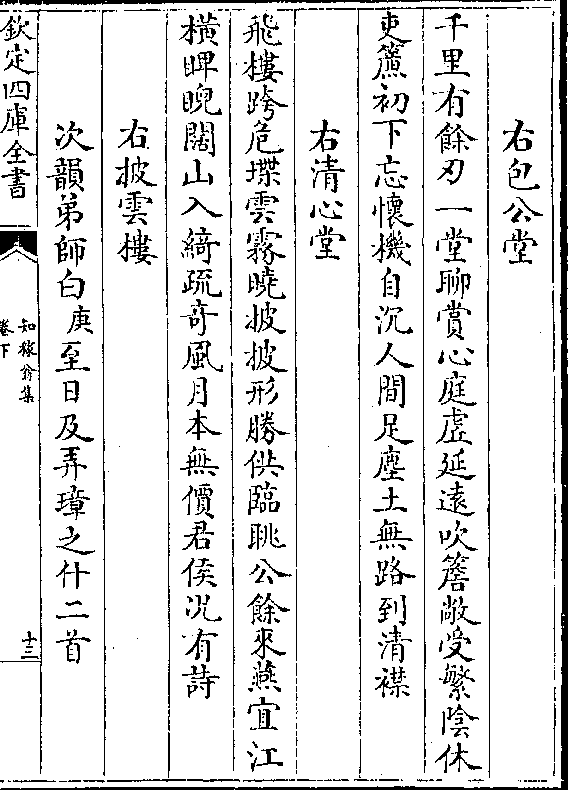 右包公堂
千里有餘刃一堂聊賞心庭虛延遠吹簷敞受繁陰休
吏簾初下忘懷機自沉人間足塵土無路到清襟
右清心堂
飛樓跨危堞雲霧曉披披形勝供臨眺公餘來燕宜江
橫睥睨闊山入綺疏奇風月本無價君侯况有詩
右披雲樓
次韻弟師白庚至日及弄璋之什二首
欽定四庫全書
知稼翁集
卷下
十三